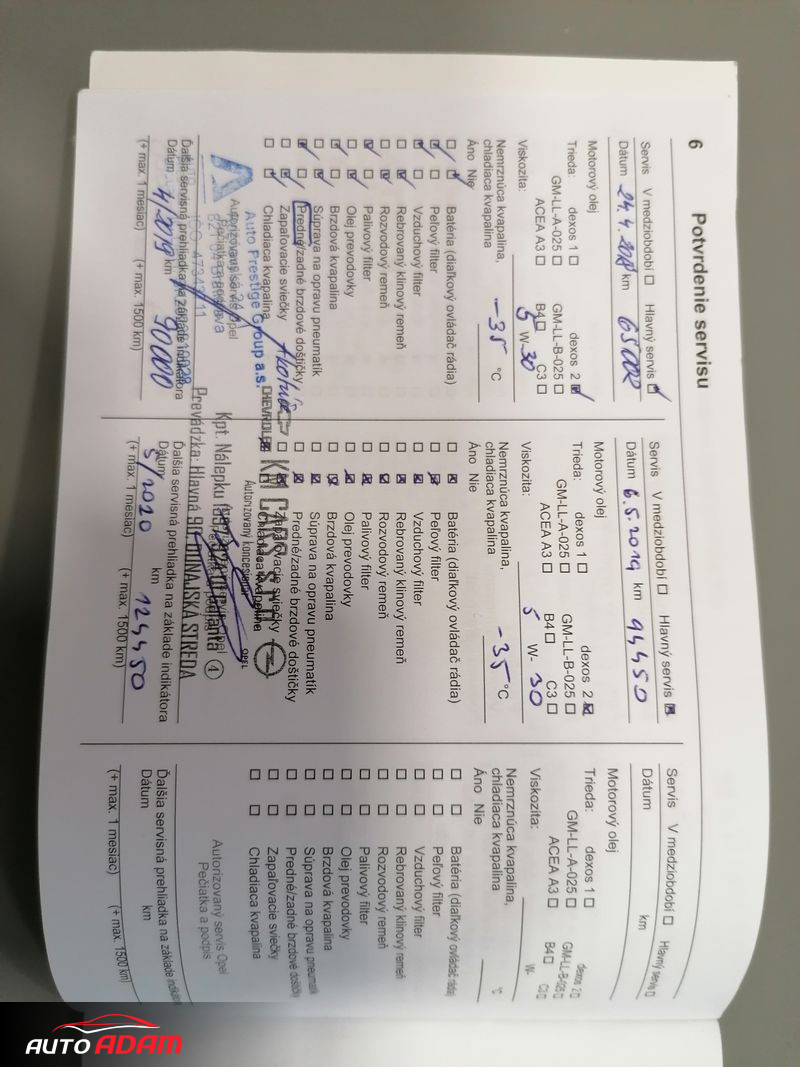 6
Potvrdenie servisu
Servis V medziobdobí ☐ Hlavný servis ☑
Dátum 24.4.2018 km
Motorový olej
Trieda: dexos 1 ☐ dexos 2 ☑
GM-LL-A-025 ☐ GM-LL-B-025 ☐
ACEA A3 ☐ B4 ☐ C3 ☐
Viskozita: 5 W-30
Nemrznúca kvapalina,
chladiaca kvapalina -35 °C
Áno Nie
Batéria (diaľkový ovládač rádia)
Peľový filter
Vzduchový filter
Rebrovaný klinový remeň
Rozvodový remeň
Palivový filter
Olej prevodovky
Brzdová kvapalina
Súprava na opravu pneumatík
Predné/zadné brzdové doštičky
Zapaľovacie sviečky
Chladiaca kvapalina
Auto Prestige Group a.s.
Autorizovaný servis Opel
Ďalšia servisná prehliadka na základe indikátora
Dátum 4/2019 km 90000
(+ max. 1 mesiac) (+ max. 1500 km)
Servis V medziobdobí ☐ Hlavný servis ☒
Dátum 6.5.2019 km 94450
Motorový olej
Trieda: dexos 1 ☐ dexos 2 ☒
GM-LL-A-025 ☐ GM-LL-B-025 ☐
ACEA A3 ☐ B4 ☐ C3 ☐
Viskozita: 5 W- 30
Nemrznúca kvapalina,
chladiaca kvapalina -35 °C
Áno Nie
Batéria (diaľkový ovládač rádia)
Peľový filter
Vzduchový filter
Rebrovaný klinový remeň
Rozvodový remeň
Palivový filter
Olej prevodovky
Brzdová kvapalina
Súprava na opravu pneumatík
Predné/zadné brzdové doštičky
Zapaľovacie sviečky
Chladiaca kvapalina
CHEVROLET KM CARS s.r.o. OPEL
Autorizovaný koncesionár
Kpt. Nálepku
Prevádzka: Hlavná DUNAJSKÁ STREDA
Ďalšia servisná prehliadka na základe indikátora
Dátum 5/2020 km 124450
(+ max. 1 mesiac) (+ max. 1500 km)
Servis V medziobdobí ☐ Hlavný servis ☐
Dátum km
Motorový olej
Trieda: dexos 1 ☐ dexos 2 ☐
GM-LL-A-025 ☐ GM-LL-B-025 ☐
ACEA A3 ☐ B4 ☐ C3 ☐
Viskozita: W-
Nemrznúca kvapalina,
chladiaca kvapalina °C
Áno Nie
Batéria (diaľkový ovládač rádia)
Peľový filter
Vzduchový filter
Rebrovaný klinový remeň
Rozvodový remeň
Palivový filter
Olej prevodovky
Brzdová kvapalina
Súprava na opravu pneumatík
Predné/zadné brzdové doštičky
Zapaľovacie sviečky
Chladiaca kvapalina
Autorizovaný servis Opel
Pečiatka a podpis
Ďalšia servisná prehliadka na základe indikátora
Dátum km
(+ max. 1 mesiac) (+ max. 1500 km)
AUTO ADAM